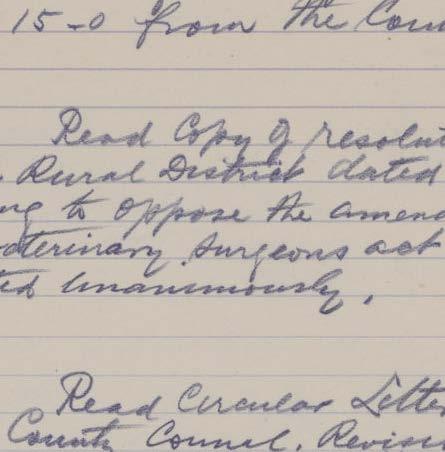 15-0 from the Coun
Read Copy of resolut
Rural District dated
ng to oppose the amend
veterinary surgeons act
ted unanimously.
Read Circular Letter
County Council. Revisi